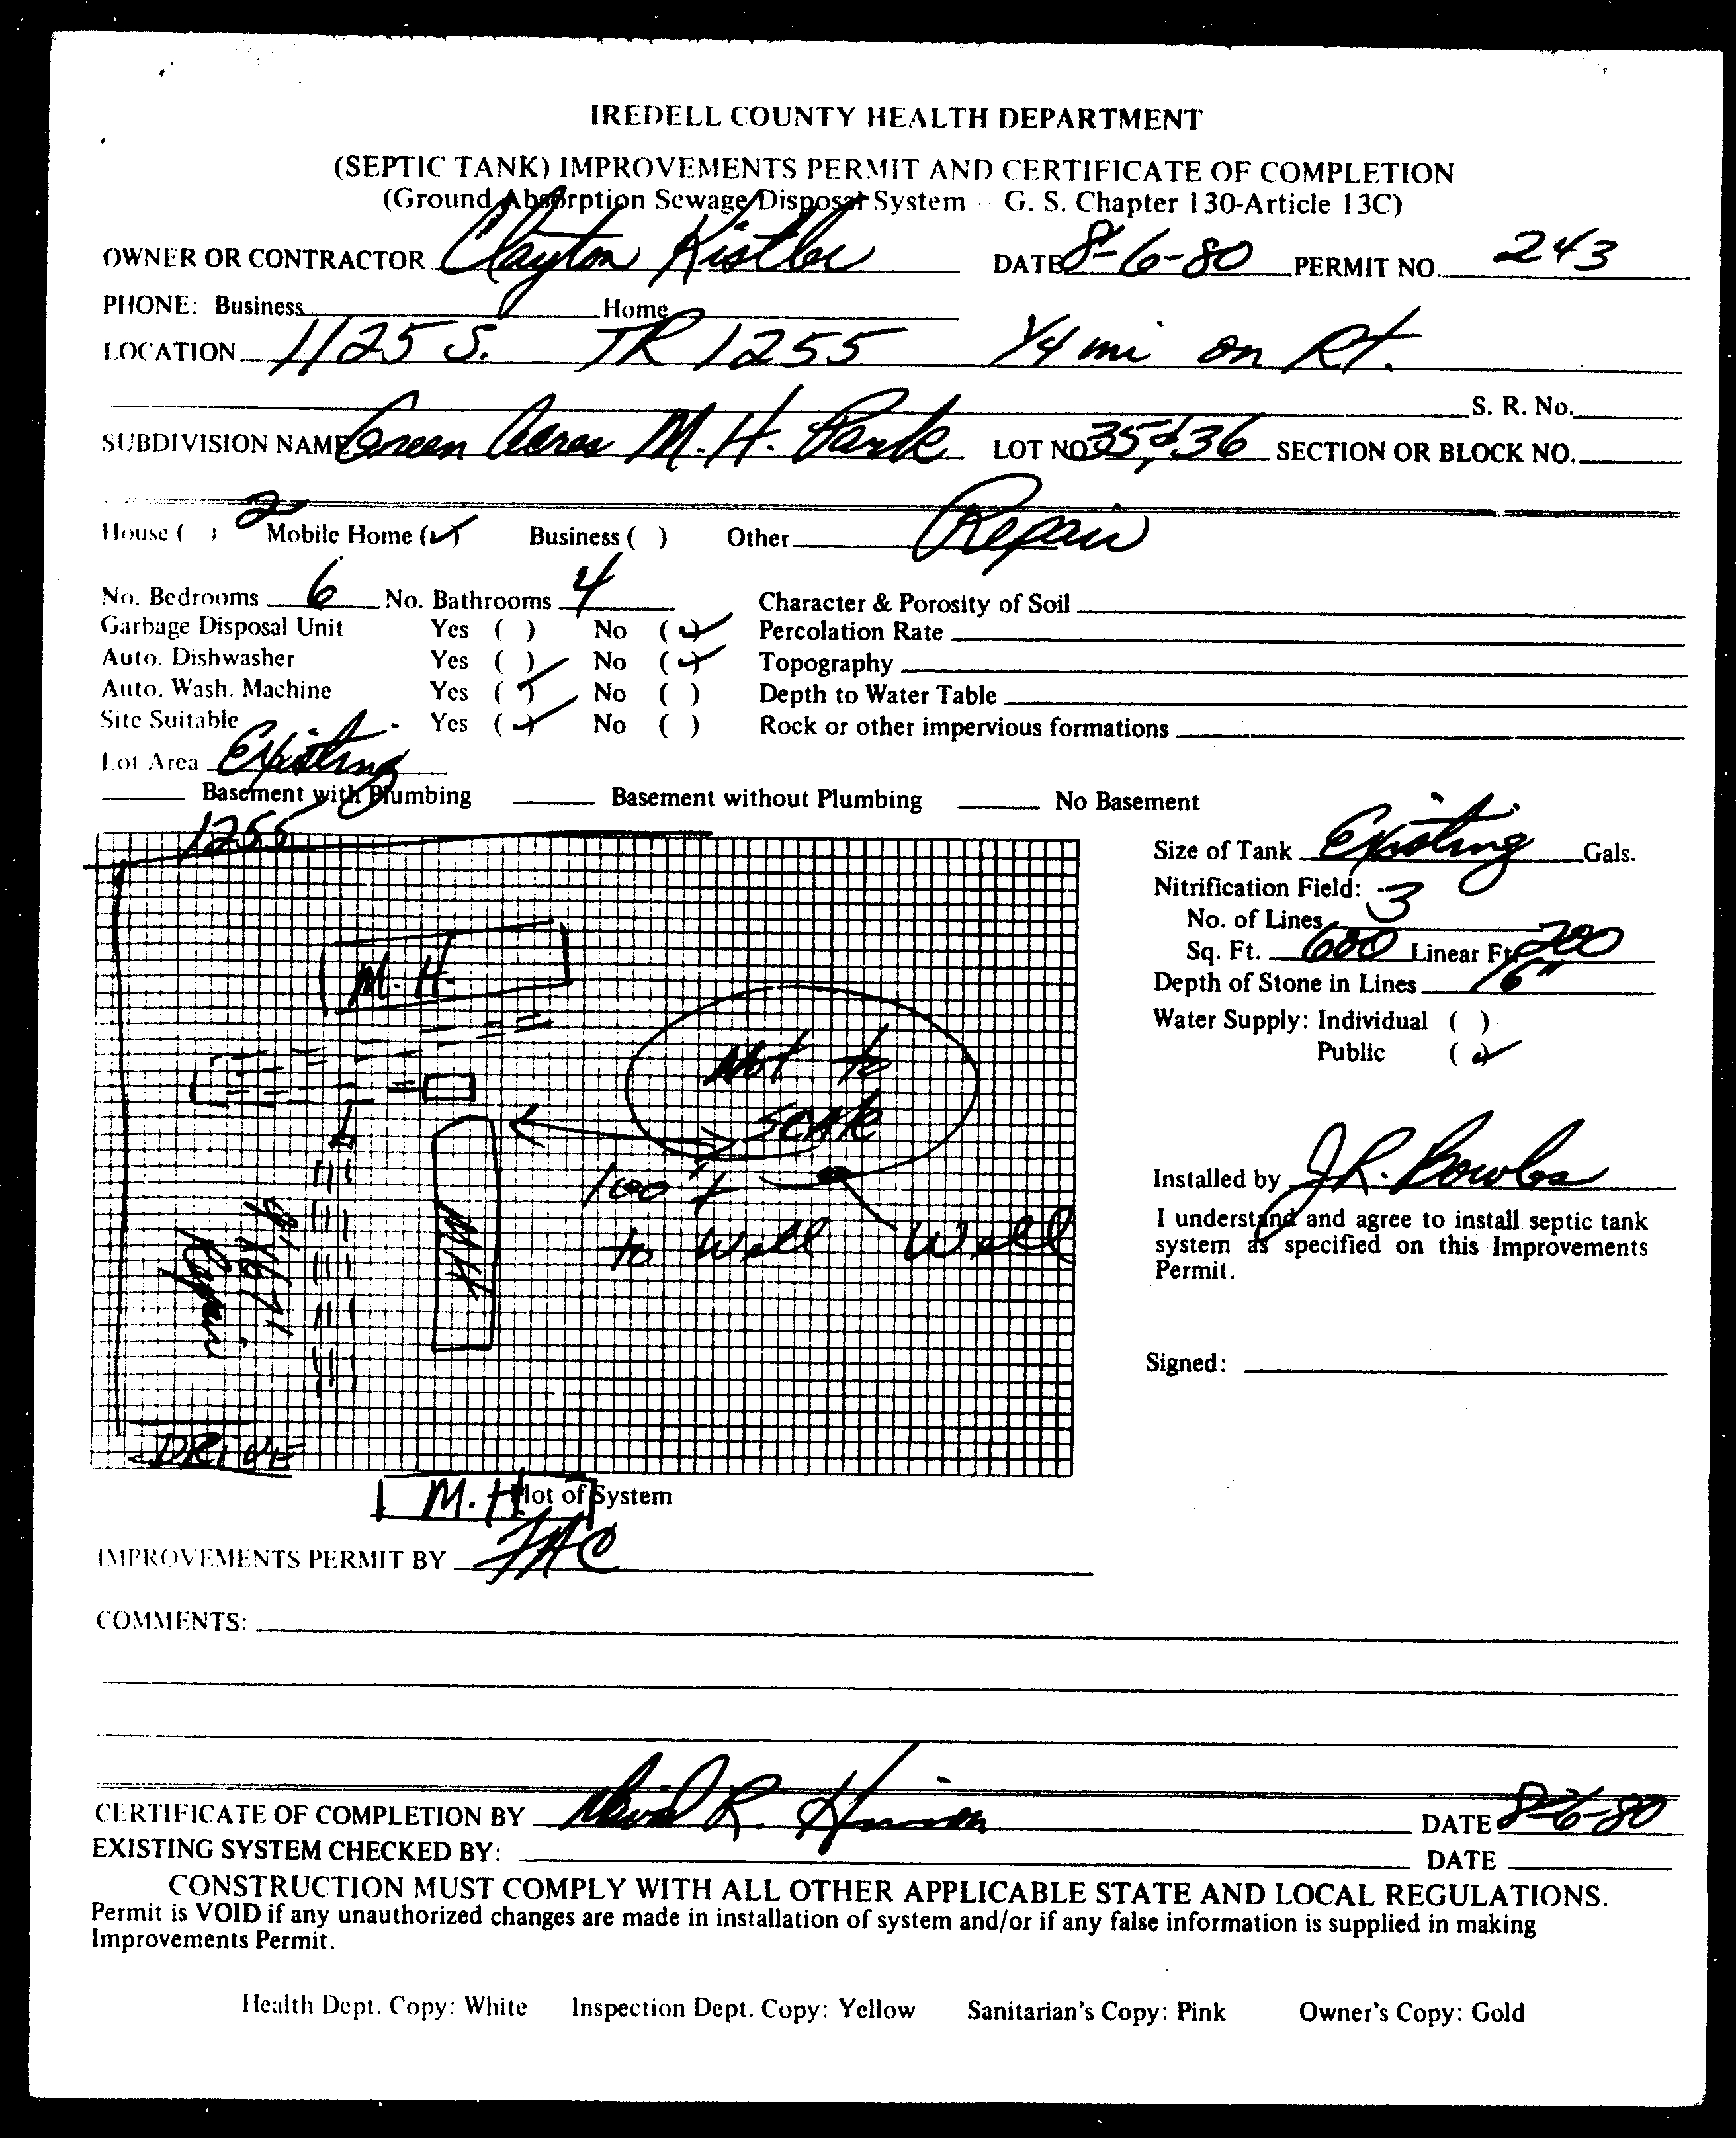 IREDELL COUNTY HEALTH DEPARTMENT
(SEPTIC TANK) IMPROVEMENTS PERMIT AND CERTIFICATE OF COMPLETION
(Ground Absorption Sewage Disposal System – G. S. Chapter 130-Article 13C)
OWNER OR CONTRACTOR Clayton Kistler DATE 8-6-80 PERMIT NO. 243
PHONE: Business Home
LOCATION 1125 S. TR 1255 1/4 mi on Rt.
S. R. No.
SUBDIVISION NAME Green Acres M.H. Park LOT NO 35 & 36 SECTION OR BLOCK NO.
House ( ) 2 Mobile Home (✓) Business ( ) Other Repair
No. Bedrooms 6 No. Bathrooms 4 Character & Porosity of Soil
Garbage Disposal Unit Yes ( ) No (✓) Percolation Rate
Auto. Dishwasher Yes ( ) No (✓) Topography
Auto. Wash. Machine Yes (✓) No ( ) Depth to Water Table
Site Suitable Yes (✓) No ( ) Rock or other impervious formations
Lot Area Existing
Basement with Plumbing Basement without Plumbing No Basement
1255
Size of Tank Existing Gals.
Nitrification Field:
No. of Lines 3
Sq. Ft. 600 Linear Ft 200
Depth of Stone in Lines 6"
Water Supply: Individual ( )
Public (✓)
M.H.
Not to
Scale
100'+
to Well Well
MH
Repair
DRIVE
Installed by J.R. Bowles
I understand and agree to install septic tank
system as specified on this Improvements
Permit.
Signed:
M.H. Plot of System
IMPROVEMENTS PERMIT BY
COMMENTS:
CERTIFICATE OF COMPLETION BY David R. DATE 8-6-80
EXISTING SYSTEM CHECKED BY: DATE
CONSTRUCTION MUST COMPLY WITH ALL OTHER APPLICABLE STATE AND LOCAL REGULATIONS.
Permit is VOID if any unauthorized changes are made in installation of system and/or if any false information is supplied in making
Improvements Permit.
Health Dept. Copy: White Inspection Dept. Copy: Yellow Sanitarian's Copy: Pink Owner's Copy: Gold